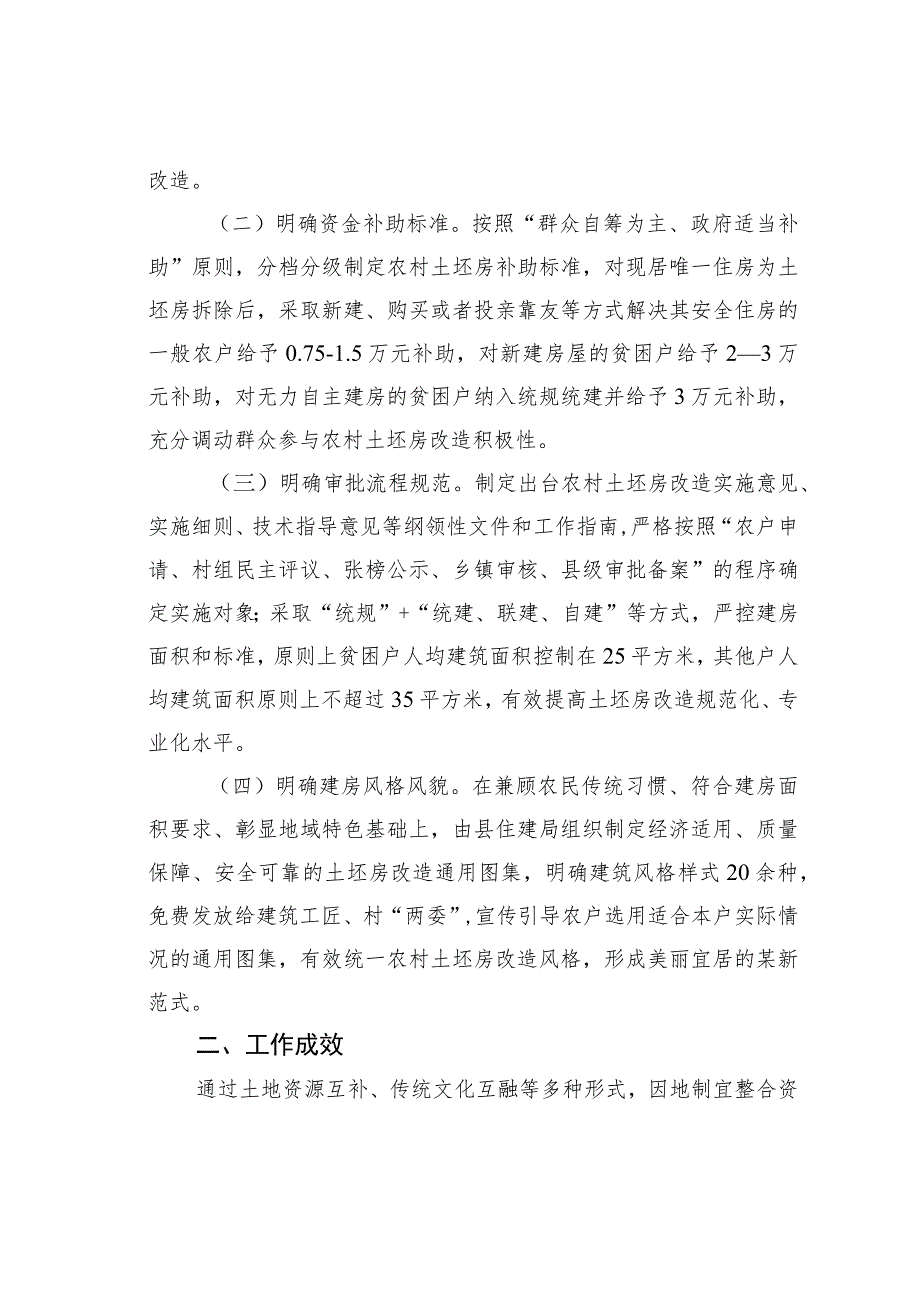 改造。
（二）明确资金补助标准。按照“群众自筹为主、政府适当补
助”原则，分档分级制定农村土坯房补助标准，对现居唯一住房为土
坯房拆除后，采取新建、购买或者投亲靠友等方式解决其安全住房的
一般农户给予 0.75-1.5 万元补助，对新建房屋的贫困户给予 2—3 万
元补助，对无力自主建房的贫困户纳入统规统建并给予 3 万元补助，
充分调动群众参与农村土坯房改造积极性。
（三）明确审批流程规范。制定出台农村土坯房改造实施意见、
实施细则、技术指导意见等纲领性文件和工作指南,严格按照“农户申
请、村组民主评议、张榜公示、乡镇审核、县级审批备案”的程序确
定实施对象；采取“统规”+“统建、联建、自建”等方式，严控建房
面积和标准，原则上贫困户人均建筑面积控制在 25 平方米，其他户人
均建筑面积原则上不超过 35 平方米，有效提高土坯房改造规范化、专
业化水平。
（四）明确建房风格风貌。在兼顾农民传统习惯、符合建房面
积要求、彰显地域特色基础上，由县住建局组织制定经济适用、质量
保障、安全可靠的土坯房改造通用图集，明确建筑风格样式 20 余种，
免费发放给建筑工匠、村“两委”,宣传引导农户选用适合本户实际情
况的通用图集，有效统一农村土坯房改造风格，形成美丽宜居的某新
范式。
二、工作成效
通过土地资源互补、传统文化互融等多种形式，因地制宜整合资